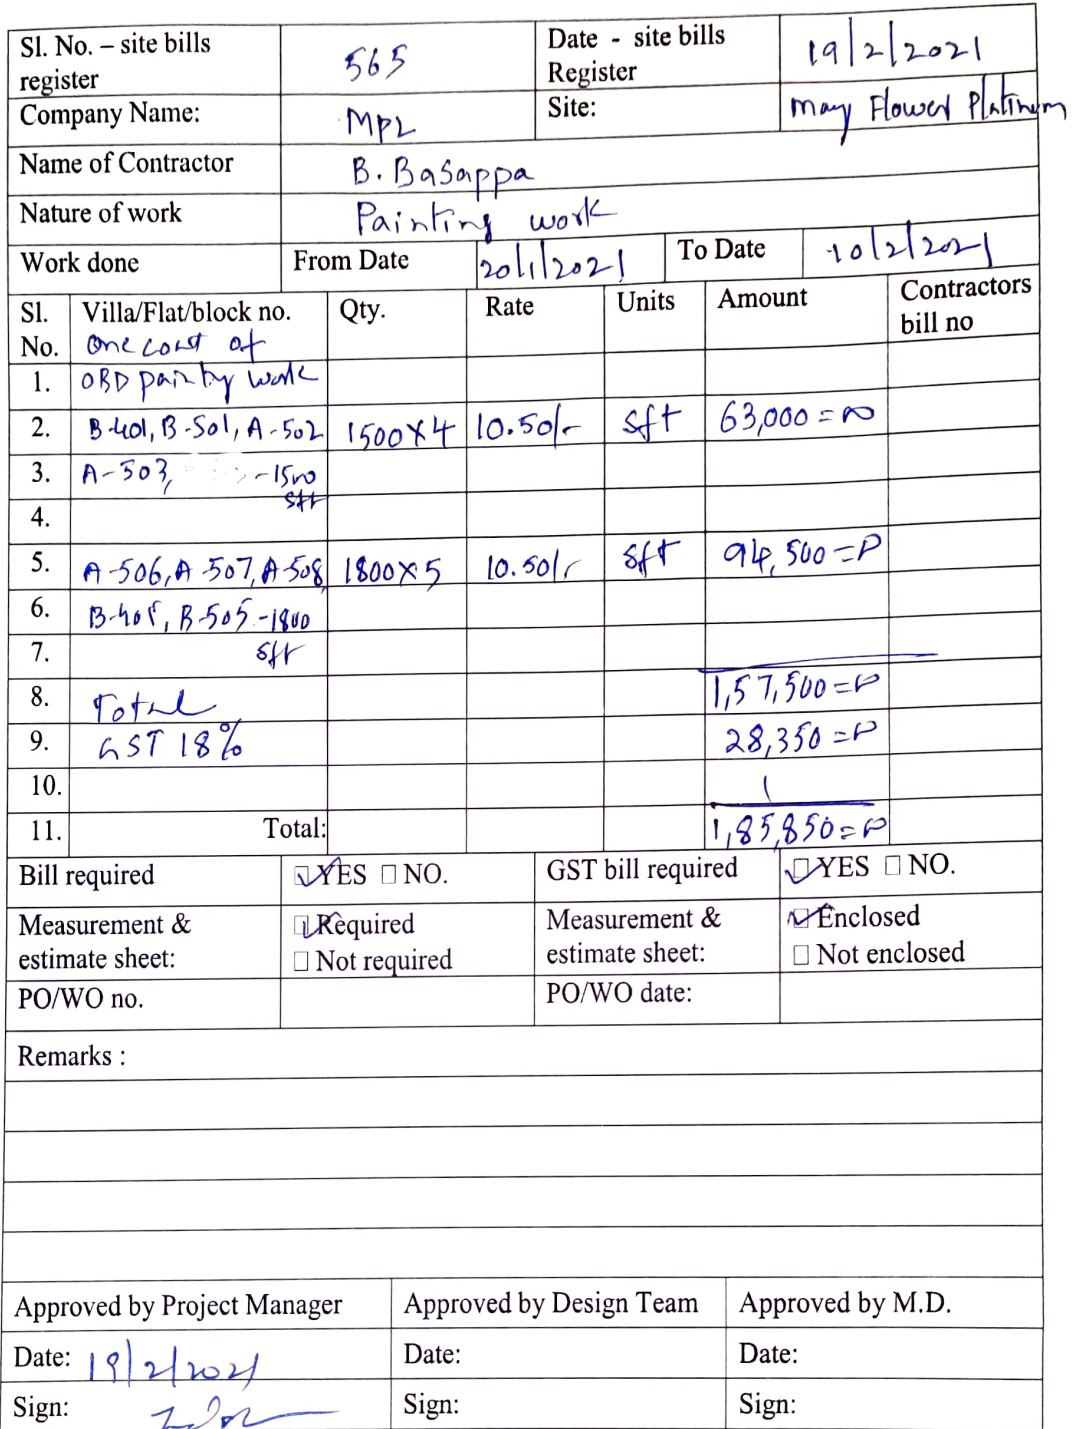 Sl. No. – site bills register 565 Date - site bills Register 19/2/2021
Company Name: MPL Site: May Flower Platinum
Name of Contractor B. Basappa
Nature of work Painting work
Work done From Date 20/1/2021 To Date 10/2/2021
Sl. No. Villa/Flat/block no. Qty. Rate Units Amount Contractors bill no
one coat of
1. OBD painting work
2. B-401, B-501, A-502 1500×4 10.50/- sft 63,000=00
3. A-503, -1500
sft
4.
5. A-506, A-507, A-508 1800×5 10.50/- sft 94,500=00
6. B-405, B-505-1800
7. sft
8. Total 1,57,500=00
9. GST 18% 28,350=00
10.
11. Total: 1,85,850=00
Bill required YES NO. GST bill required YES NO.
Measurement & estimate sheet: Required Not required Measurement & estimate sheet: Enclosed Not enclosed
PO/WO no. PO/WO date:
Remarks :
Approved by Project Manager Approved by Design Team Approved by M.D.
Date: 19/2/2021 Date: Date:
Sign: Sign: Sign: